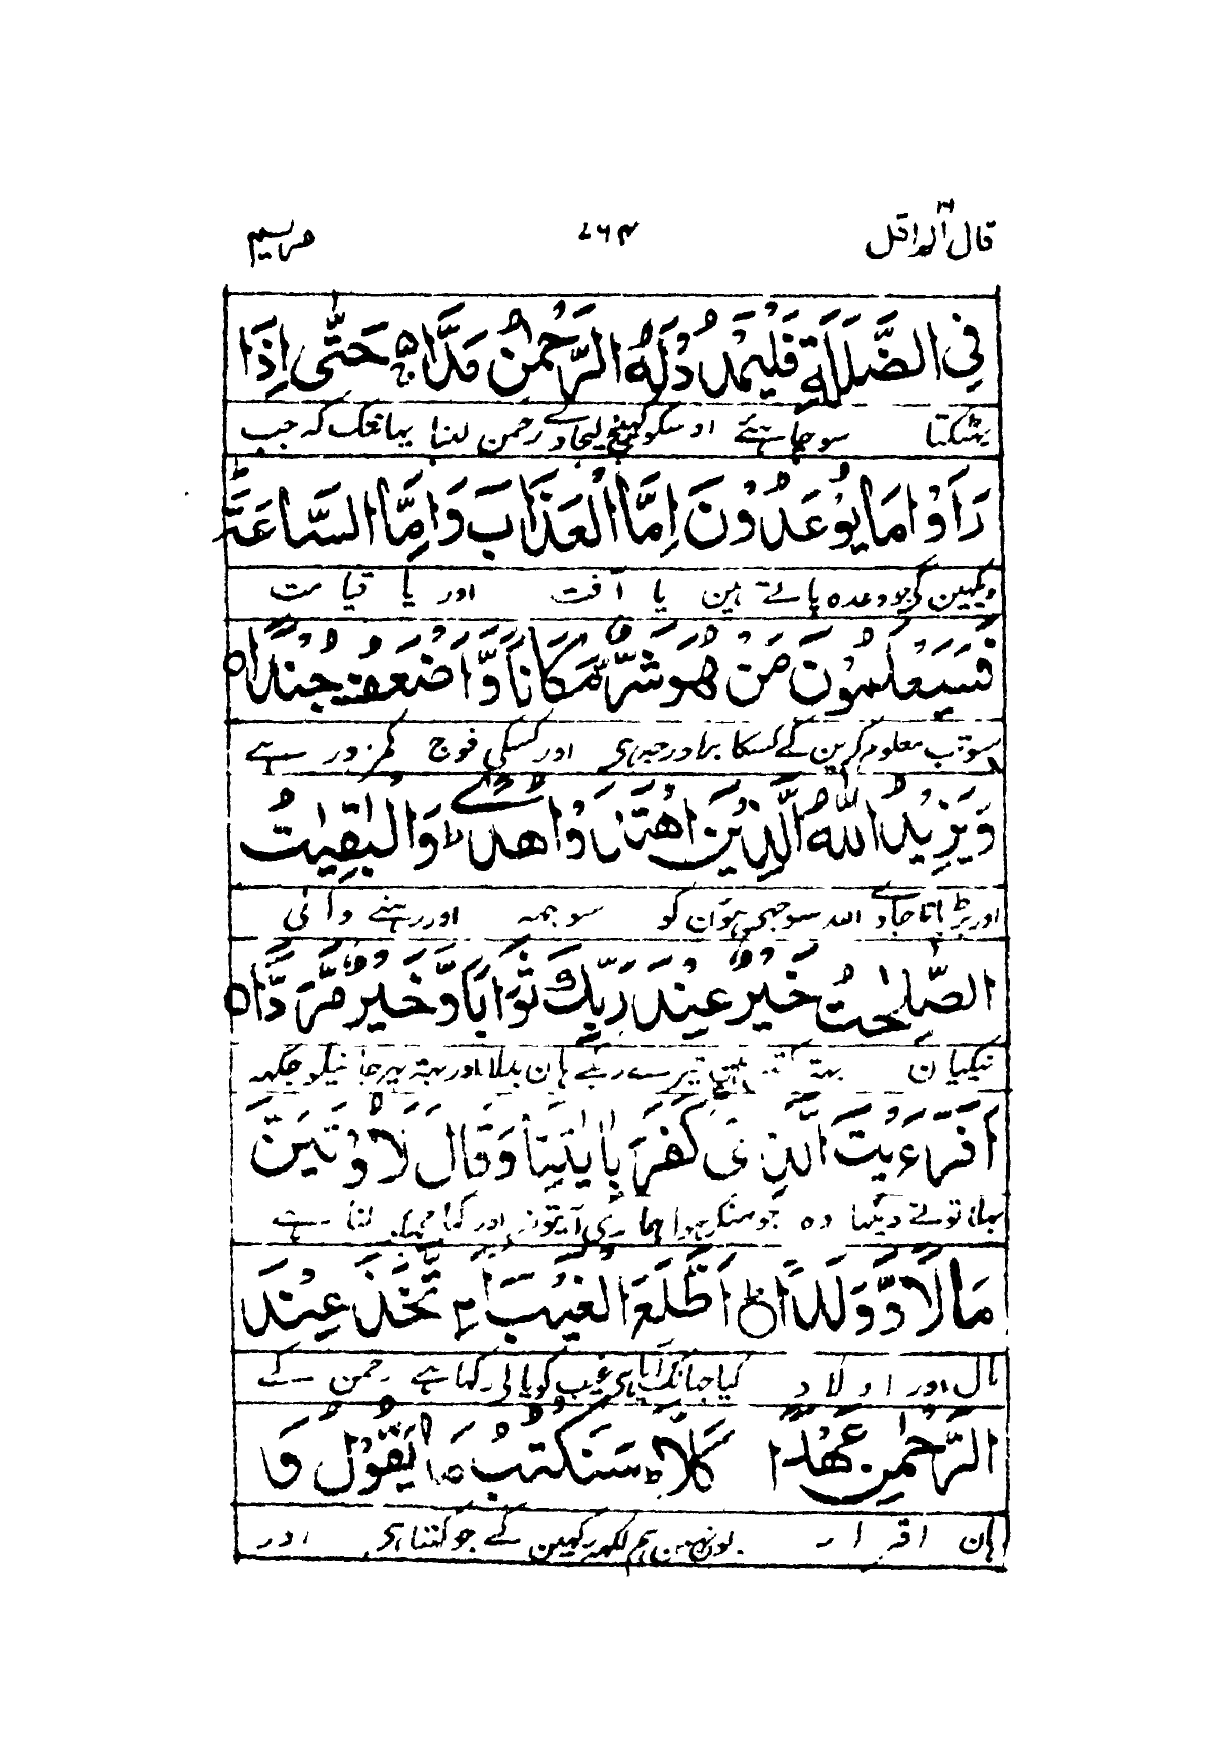 قال الم اقل ۱۶ ۷۶۴ مریم
فِي الضَّلٰلَةِ فَلْيَمْدُدْ لَهُ الرَّحْمٰنُ مَدًّا ۚ۬ حَتّٰى اِذَا
بھٹکتا سو چاہئے اوسکو کھینچ لیجاوے رحمن لنبا یہانتک کہ جب
رَاَوْا مَا يُوْعَدُوْنَ اِمَّا الْعَذَابَ وَاِمَّا السَّاعَةَ ؕ
دیکھین گے جو وعدہ پاتے ہین یا آفت اور یا قیامت
فَسَيَعْلَمُوْنَ مَنْ هُوَ شَرٌّ مَّكَانًا وَّاَضْعَفُ جُنْدًا ۝
سو تب معلوم کرین گے کسکا برا درجہ ہی اور کسکی فوج کمزور ہے
وَيَزِيْدُ اللّٰهُ الَّذِيْنَ اهْتَدَوْا هُدًى ؕ وَالْبٰقِيٰتُ
اور بڑہاتا جاوے اللہ سوجھی ہوؤن کو سوجھہ اور رہنے والی
الصّٰلِحٰتُ خَيْرٌ عِنْدَ رَبِّكَ ثَوَابًا وَّخَيْرٌ مَّرَدًّا ۝
نیکیان بہتر رکھتی ہین تیرے رب کے ہان بدلا اور بہتر پھر جانیکو جگہہ
اَفَرَءَيْتَ الَّذِيْ كَفَرَ بِاٰيٰتِنَا وَقَالَ لَاُوْتَيَنَّ
بھلا تونے دیکھا وہ جو منکر ہوا ہماری آیتونسے اور کہا مجہکو لنا ہے
مَالًا وَّوَلَدًا ۝ اَطَّلَعَ الْغَيْبَ اَمِ اتَّخَذَ عِنْدَ
مال اور اولاد کیا جہانک آیا ہی غیب کو یا لی رکھا ہے رحمن کے
الرَّحْمٰنِ عَهْدًا كَلَّا ؕ سَنَكْتُبُ مَا يَقُوْلُ وَ
ہان اقرار یون نہین ہم لکھہ رکھین گے جو کہتا ہی اور